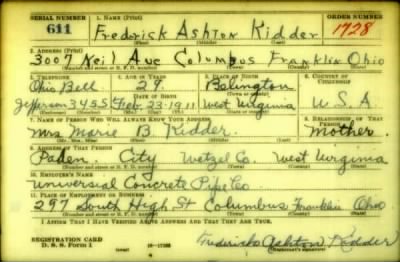 SERIAL NUMBER 1. NAME (Print) ORDER NUMBER
611 Frederick Ashton Kidder 1728
(First) (Middle) (Last)
2. ADDRESS (Print)
3007 Neil Ave Columbus Franklin Ohio
3. TELEPHONE 4. AGE IN YEARS 5. PLACE OF BIRTH 6. COUNTRY OF CITIZENSHIP
Ohio Bell 29 Belington
DATE OF BIRTH
Jefferson 3455 Feb. 23-1911 West Virginia U.S.A.
7. NAME OF PERSON WHO WILL ALWAYS KNOW YOUR ADDRESS 8. RELATIONSHIP OF THAT PERSON
Mrs. Marie B. Kidder. Mother.
9. ADDRESS OF THAT PERSON
Paden City Wetzel Co. West Virginia
10. EMPLOYER'S NAME
Universal Concrete Pipe Co
11. PLACE OF EMPLOYMENT OR BUSINESS
297 South High St Columbus Franklin Ohio
I AFFIRM THAT I HAVE VERIFIED ABOVE ANSWERS AND THAT THEY ARE TRUE.
REGISTRATION CARD
D. S. S. Form 1 Frederick Ashton Kidder